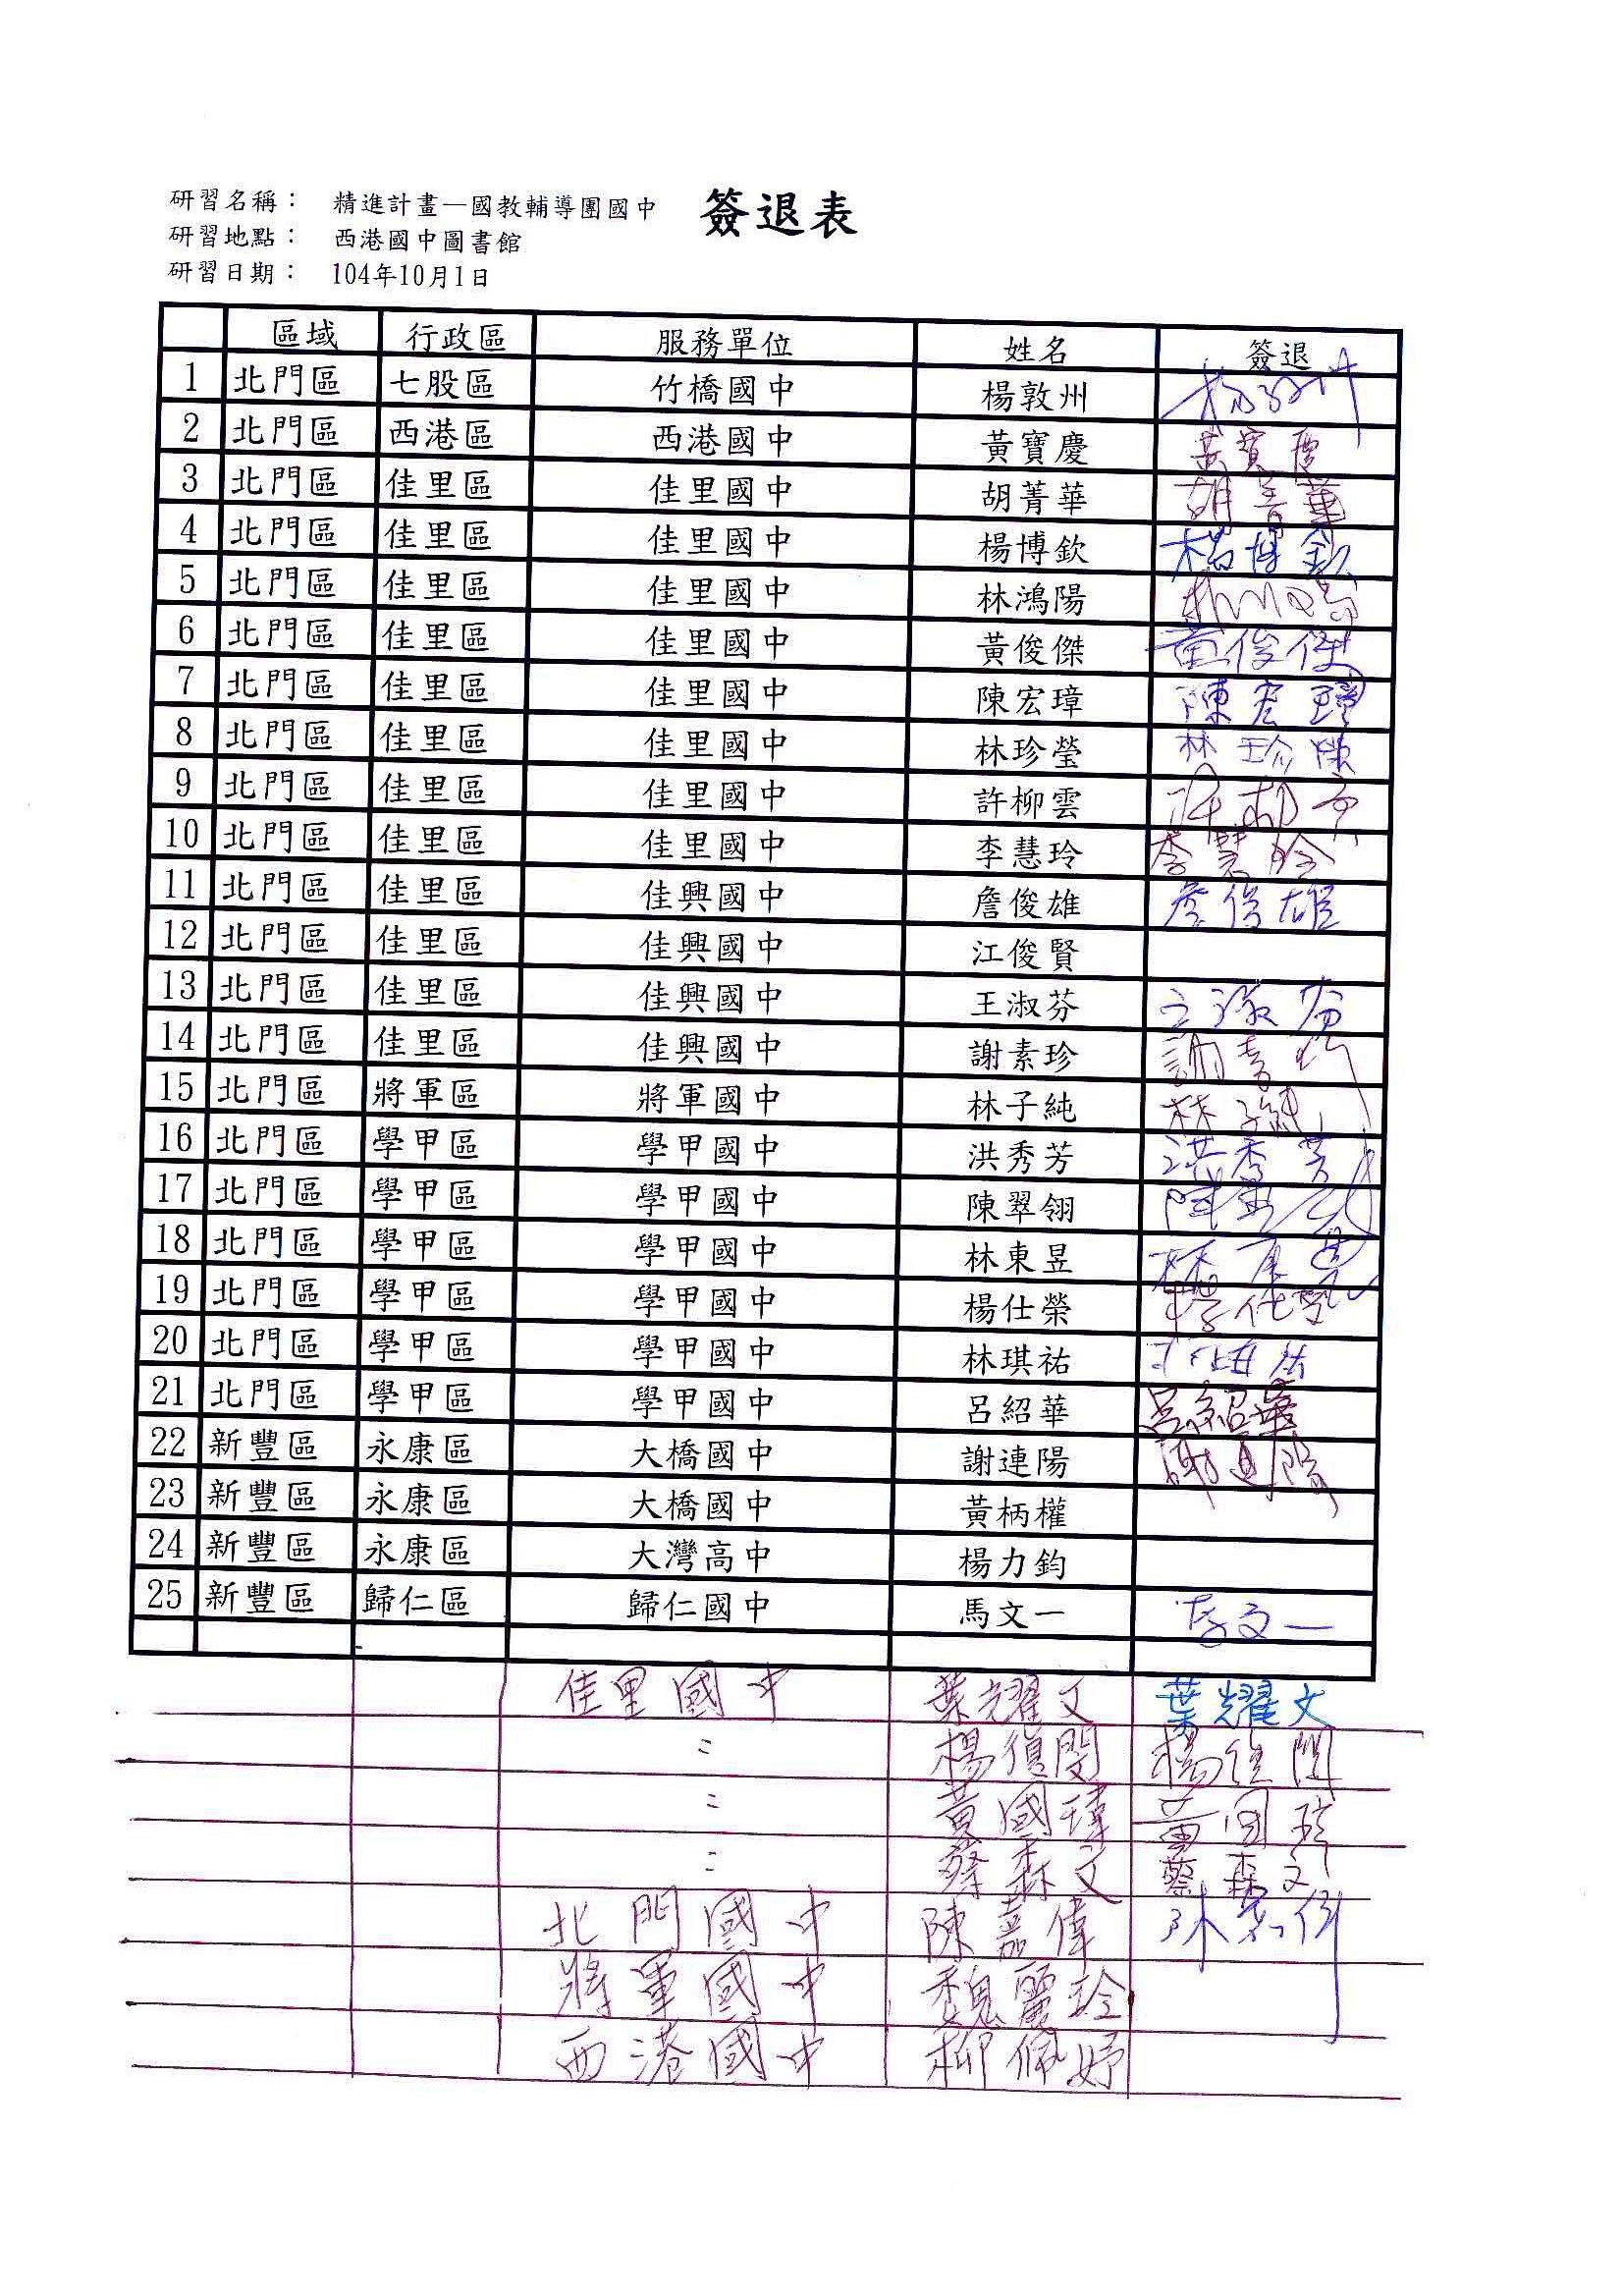 簽退表
研習名稱： 精進計畫—國教輔導團國中
研習地點： 西港國中圖書館
研習日期： 104年10月1日
區域 行政區 服務單位 姓名 簽退
1 北門區 七股區 竹橋國中 楊敦州
2 北門區 西港區 西港國中 黃寶慶 黃寶慶
3 北門區 佳里區 佳里國中 胡菁華 胡菁華
4 北門區 佳里區 佳里國中 楊博欽 楊博欽
5 北門區 佳里區 佳里國中 林鴻陽
6 北門區 佳里區 佳里國中 黃俊傑 黃俊傑
7 北門區 佳里區 佳里國中 陳宏璋 陳宏璋
8 北門區 佳里區 佳里國中 林珍瑩 林珍瑩
9 北門區 佳里區 佳里國中 許柳雲 許柳雲
10 北門區 佳里區 佳里國中 李慧玲 李慧玲
11 北門區 佳里區 佳興國中 詹俊雄 詹俊雄
12 北門區 佳里區 佳興國中 江俊賢
13 北門區 佳里區 佳興國中 王淑芬 王淑芬
14 北門區 佳里區 佳興國中 謝素珍
15 北門區 將軍區 將軍國中 林子純 林子純
16 北門區 學甲區 學甲國中 洪秀芳 洪秀芳
17 北門區 學甲區 學甲國中 陳翠翎
18 北門區 學甲區 學甲國中 林東昱
19 北門區 學甲區 學甲國中 楊仕榮
20 北門區 學甲區 學甲國中 林琪祐
21 北門區 學甲區 學甲國中 呂紹華 呂紹華
22 新豐區 永康區 大橋國中 謝連陽 謝連陽
23 新豐區 永康區 大橋國中 黃柄權
24 新豐區 永康區 大灣高中 楊力鈞
25 新豐區 歸仁區 歸仁國中 馬文一 馬文一
佳里國中 葉耀文 葉耀文
〃 楊 閔 楊
〃 黃國瑋 黃国瑋
〃 蔡森文 蔡森文
北門國中 陳嘉偉
將軍國中 魏麗玲
西港國中 柳佩妤